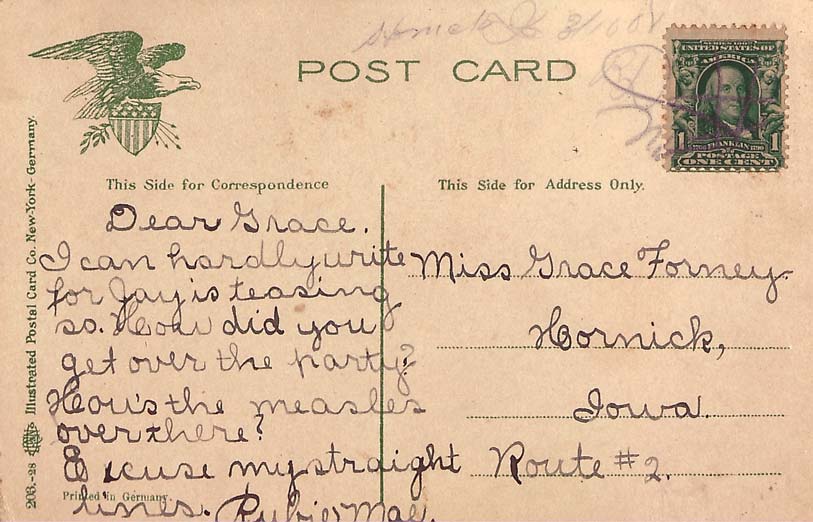 Hornick Ia 3/10 08
POST CARD
SERIES 1902
UNITED STATES OF
AMERICA
1 1
FRANKLIN
POSTAGE
ONE CENT
This Side for Correspondence
This Side for Address Only.
Dear Grace.
I can hardly write
for Jay is teasing
so. How did you
get over the party?
How's the measles
over there?
Excuse my straight
lines. Rubie Mae.
Miss Grace Forney-
Hornick,
Iowa.
Route #2.
Printed in Germany.
203.-28 Illustrated Postal Card Co. New-York - Germany.